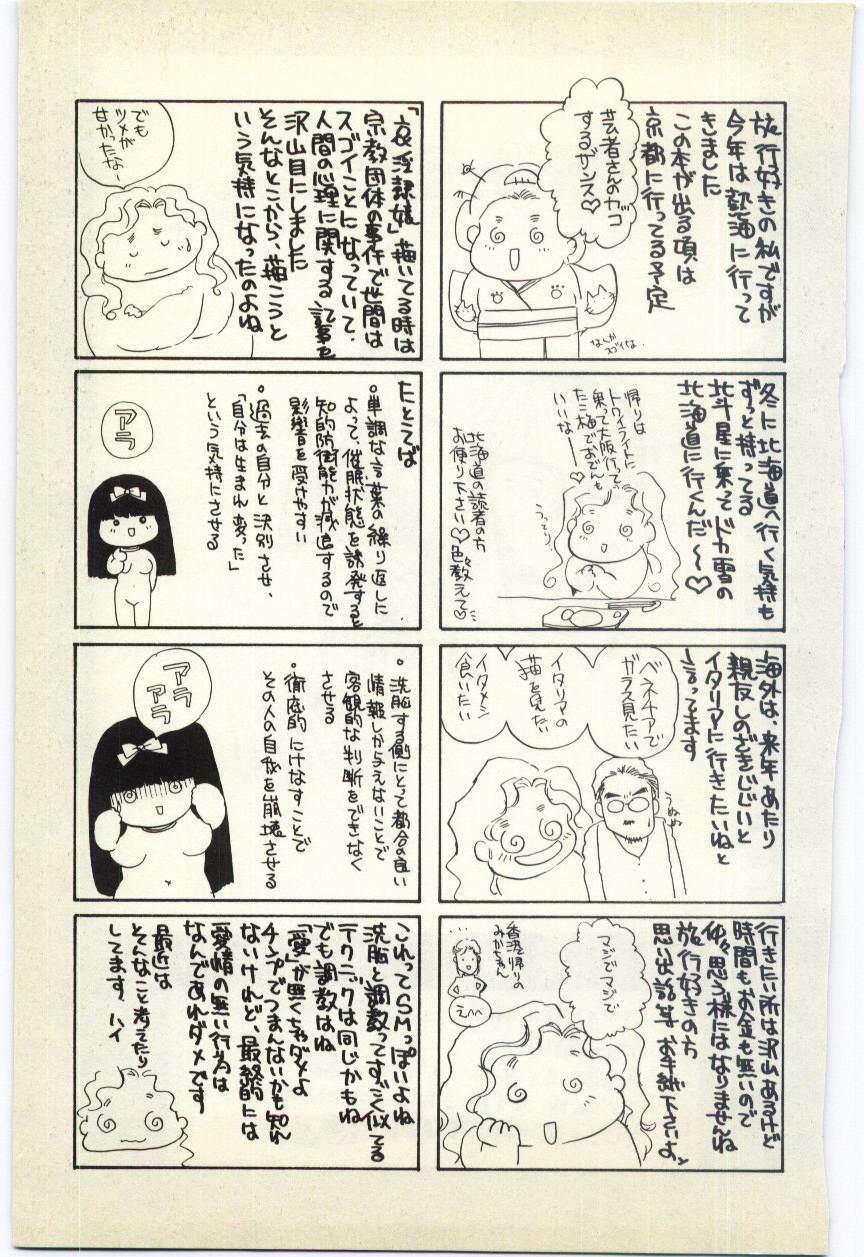 旅行好きの私ですが
今年は熱海に行って
きました
この本が出る頃は
京都に行ってる予定
芸者さんのカッコ
するザンス♡
なんか
スゴイな
冬に北海道へ行く気持も
ずっと持ってる
北斗星に乗ってドカ雪の
北海道に行くんだ〜♡
帰りは
トワイライトに
乗って大阪行って、
たこ梅でおでんも
いいなー♡
うっとり
北海道の読者の方
お便り下さい♡
色々教えて♡
海外は、来年あたり
親友しのざきじじいと
イタリアに行きたいねと
言ってます
ベネチアで
ガラス見たい
イタリアの
猫を見たい
イタメシ
食いたい
うぬぬ
行きたい所は沢山あるけど
時間もお金も無いので
仲々思う様にはなりませんね
旅行好きの方
思い出話等お手紙下さいよ。
マジでマジで
香港帰りの
みかちゃん
えへへ
「哀淫隷嬢」描いてる時は
宗教団体の事件で世間は
スゴイことになっていて、
人間の心理に関する記事を
沢山目にしました
そんなとこから、描こうと
いう気持になったのよね
でも
ツメが
甘かったな〜
たとえば
・単調な言葉の繰り返しに
よって、催眠状態を誘発すると
知的防衛能力が減退するので
影響を受けやすい
・過去の自分と決別させ、
「自分は生まれ変った」
という気持にさせる
アラ
・洗脳する側にとって都合の良い
情報しか与えないことで
客観的な判断をできなく
させる
・徹底的にけなすことで
その人の自我を崩壊させる
アラ
アラ
これってSMっぽいよね
洗脳と調教ってすごく似てる
テクニックは同じかもね
でも調教はね
「愛」が無くちゃダメよ
チンプでつまんないかも知れ
ないけれど、最終的には
愛情の無い行為は
なんであれダメです
最近は
そんなこと考えたり
してます、ハイ